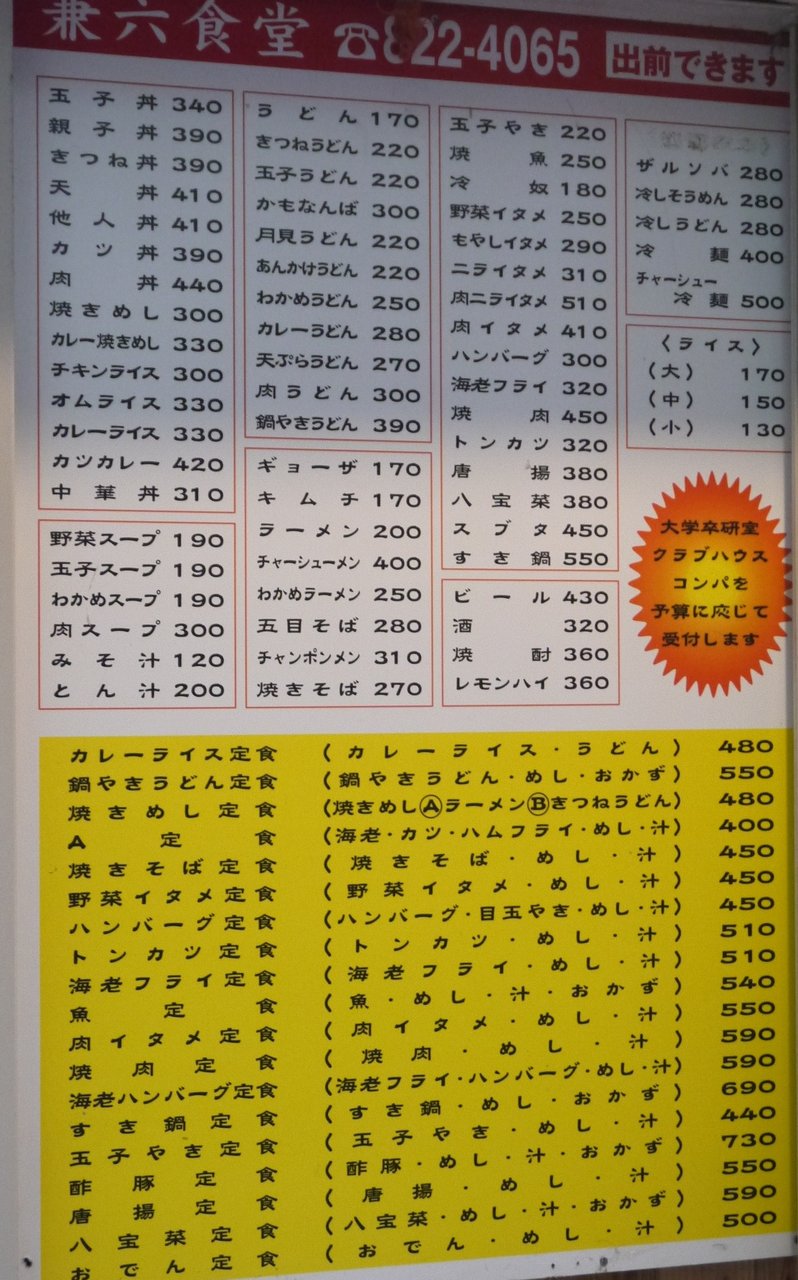 兼六食堂 ☎822-4065 出前できます
玉子丼 340
親子丼 390
きつね丼 390
天丼 410
他人丼 410
カツ丼 390
肉丼 440
焼きめし 300
カレー焼きめし 330
チキンライス 300
オムライス 330
カレーライス 330
カツカレー 420
中華丼 310
野菜スープ 190
玉子スープ 190
わかめスープ 190
肉スープ 300
みそ汁 120
とん汁 200
うどん 170
きつねうどん 220
玉子うどん 220
かもなんば 300
月見うどん 220
あんかけうどん 220
わかめうどん 250
カレーうどん 280
天ぷらうどん 270
肉うどん 300
鍋やきうどん 390
ギョーザ 170
キムチ 170
ラーメン 200
チャーシューメン 400
わかめラーメン 250
五目そば 280
チャンポンメン 310
焼きそば 270
玉子やき 220
焼魚 250
冷奴 180
野菜イタメ 250
もやしイタメ 290
ニライタメ 310
肉ニライタメ 510
肉イタメ 410
ハンバーグ 300
海老フライ 320
焼肉 450
トンカツ 320
唐揚 380
八宝菜 380
スブタ 450
すき鍋 550
ビール 430
酒 320
焼酎 360
レモンハイ 360
ザルソバ 280
冷しそうめん 280
冷しうどん 280
冷麺 400
チャーシュー
冷麺 500
〈ライス〉
(大) 170
(中) 150
(小) 130
大学卒研室
クラブハウス
コンパを
予算に応じて
受付します
カレーライス定食 (カレーライス・うどん) 480
鍋やきうどん定食 (鍋やきうどん・めし・おかず) 550
焼きめし定食 (焼きめしⒶラーメンⒷきつねうどん) 480
A定食 (海老・カツ・ハムフライ・めし・汁) 400
焼きそば定食 (焼きそば・めし・汁) 450
野菜イタメ定食 (野菜イタメ・めし・汁) 450
ハンバーグ定食 (ハンバーグ・目玉やき・めし・汁) 450
トンカツ定食 (トンカツ・めし・汁) 510
海老フライ定食 (海老フライ・めし・汁) 510
魚定食 (魚・めし・汁・おかず) 540
肉イタメ定食 (肉イタメ・めし・汁) 550
焼肉定食 (焼肉・めし・汁) 590
海老ハンバーグ定食 (海老フライ・ハンバーグ・めし・汁) 590
すき鍋定食 (すき鍋・めし・おかず) 690
玉子やき定食 (玉子やき・めし・汁) 440
酢豚定食 (酢豚・めし・汁・おかず) 730
唐揚定食 (唐揚・めし・汁) 550
八宝菜定食 (八宝菜・めし・汁・おかず) 590
おでん定食 (おでん・めし・汁) 500